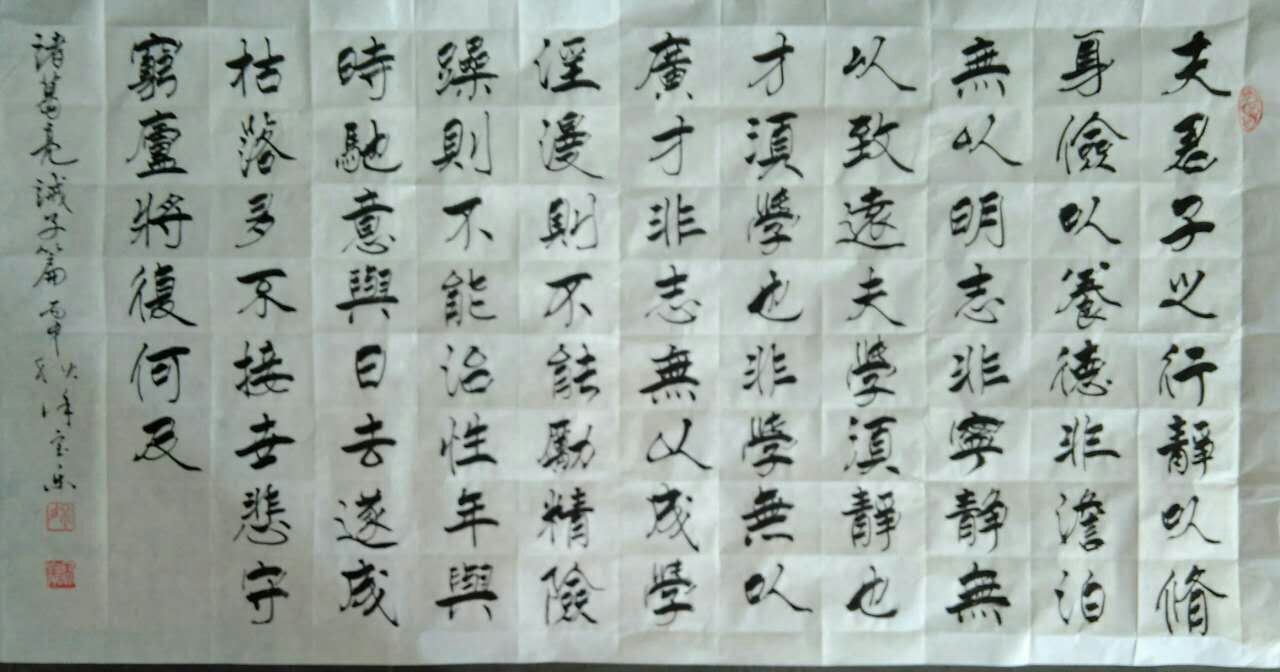 夫君子之行靜以脩
身儉以養德非澹泊
無以明志非寧靜無
以致遠夫學須靜也
才須學也非學無以
廣才非志無以成學
淫漫則不能勵精險
躁則不能治性年與
時馳意與日去遂成
枯落多不接世悲守
窮廬將復何及
諸葛亮誡子篇丙申秋